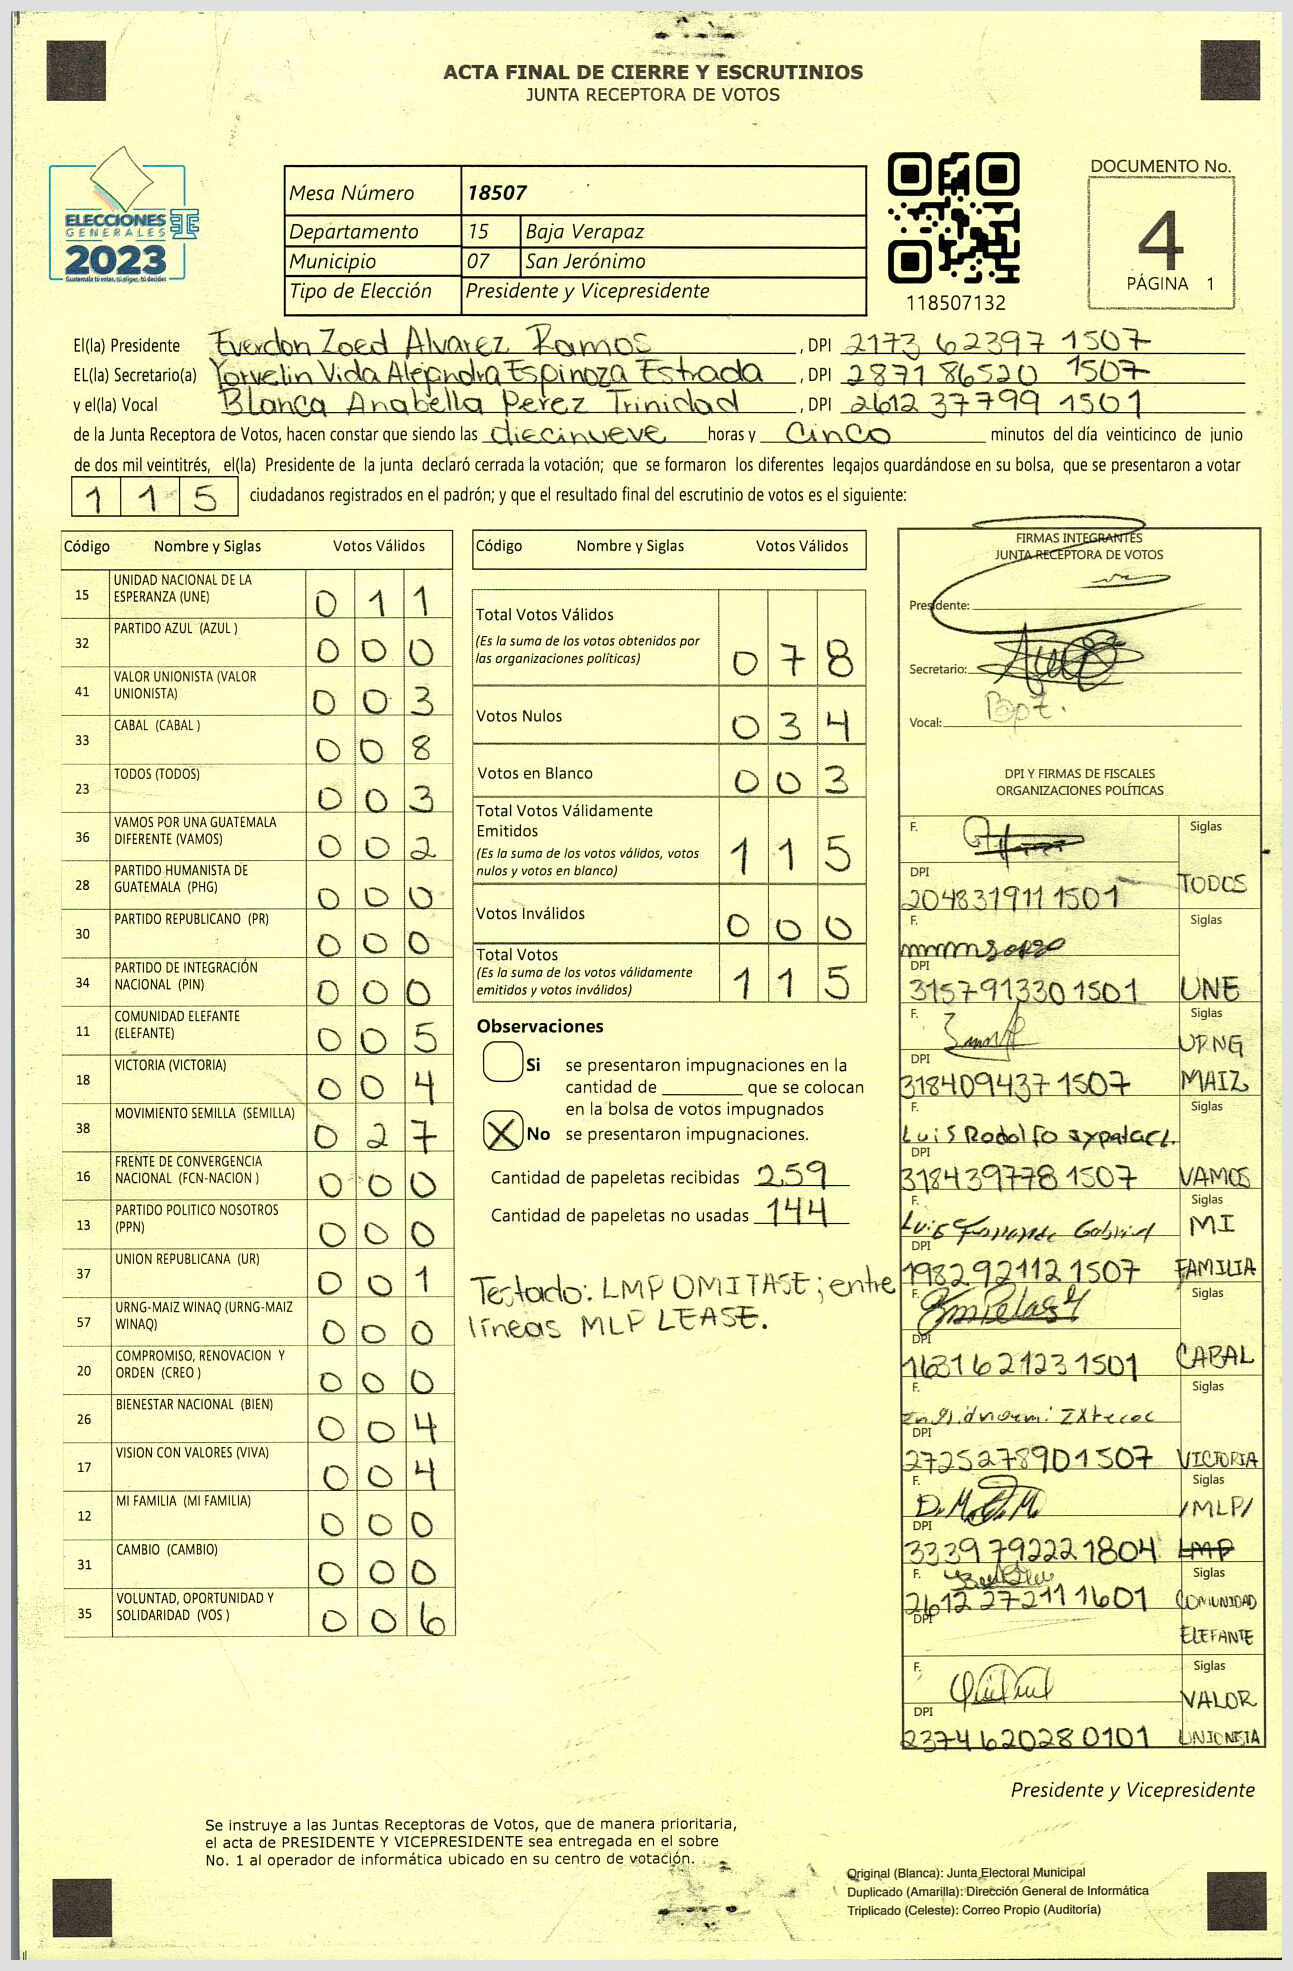 ACTA FINAL DE CIERRE Y ESCRUTINIOS
JUNTA RECEPTORA DE VOTOS
ELECCIONES
GENERALES
2023
Guatemala tú votas, tú eliges, tú decides
Mesa Número 18507
Departamento 15 Baja Verapaz
Municipio 07 San Jerónimo
Tipo de Elección Presidente y Vicepresidente
118507132
DOCUMENTO No.
4
PÁGINA 1
El(la) Presidente Everdon Zoed Alvarez Ramos, DPI 2173 62397 1507
EL(la) Secretario(a) Yorvelin Vida Alejandra Espinoza Estrada, DPI 2871 86520 1507
y el(la) Vocal Blanca Anabella Perez Trinidad, DPI 2612 37799 1501
de la Junta Receptora de Votos, hacen constar que siendo las diecinueve horas y cinco minutos del día veinticinco de junio
de dos mil veintitrés, el(la) Presidente de la junta declaró cerrada la votación; que se formaron los diferentes legajos guardándose en su bolsa, que se presentaron a votar
115 ciudadanos registrados en el padrón; y que el resultado final del escrutinio de votos es el siguiente:
Código Nombre y Siglas Votos Válidos
15 UNIDAD NACIONAL DE LA ESPERANZA (UNE) 011
32 PARTIDO AZUL (AZUL ) 000
41 VALOR UNIONISTA (VALOR UNIONISTA) 003
33 CABAL (CABAL ) 008
23 TODOS (TODOS) 003
36 VAMOS POR UNA GUATEMALA DIFERENTE (VAMOS) 002
28 PARTIDO HUMANISTA DE GUATEMALA (PHG) 000
30 PARTIDO REPUBLICANO (PR) 000
34 PARTIDO DE INTEGRACIÓN NACIONAL (PIN) 000
11 COMUNIDAD ELEFANTE (ELEFANTE) 005
18 VICTORIA (VICTORIA) 004
38 MOVIMIENTO SEMILLA (SEMILLA) 027
16 FRENTE DE CONVERGENCIA NACIONAL (FCN-NACION ) 000
13 PARTIDO POLITICO NOSOTROS (PPN) 000
37 UNION REPUBLICANA (UR) 001
57 URNG-MAIZ WINAQ (URNG-MAIZ WINAQ) 000
20 COMPROMISO, RENOVACION Y ORDEN (CREO ) 000
26 BIENESTAR NACIONAL (BIEN) 004
17 VISION CON VALORES (VIVA) 004
12 MI FAMILIA (MI FAMILIA) 000
31 CAMBIO (CAMBIO) 000
35 VOLUNTAD, OPORTUNIDAD Y SOLIDARIDAD (VOS ) 006
Código Nombre y Siglas Votos Válidos
Total Votos Válidos 078
(Es la suma de los votos obtenidos por
las organizaciones políticas)
Votos Nulos 034
Votos en Blanco 003
Total Votos Válidamente
Emitidos 115
(Es la suma de los votos válidos, votos
nulos y votos en blanco)
Votos Inválidos 000
Total Votos 115
(Es la suma de los votos válidamente
emitidos y votos inválidos)
Observaciones
Si se presentaron impugnaciones en la
cantidad de ________ que se colocan
en la bolsa de votos impugnados
X No se presentaron impugnaciones.
Cantidad de papeletas recibidas 259
Cantidad de papeletas no usadas 144
Testado: LMP OMITASE; entre
líneas MLP LEASE.
FIRMAS INTEGRANTES
JUNTA RECEPTORA DE VOTOS
Presidente:
Secretario:
Vocal: Bpt.
DPI Y FIRMAS DE FISCALES
ORGANIZACIONES POLÍTICAS
F. Siglas
DPI 204831911 1501 TODOS
F. Siglas
DPI 315791330 1501 UNE
F. Siglas
DPI 318409437 1507 URNG MAIZ
F. Luis Rodolfo Siglas
DPI 318439778 1507 VAMOS
F. Luis Fernando Gabriel Siglas
DPI 198292112 1507 MI FAMILIA
F. Siglas
DPI 163162123 1501 CABAL
F. Siglas
DPI 272527890 1507 VICTORIA
F. Siglas
DPI 3339 79222 1804 /MLP/ LMP
F. Siglas
DPI 2612 27211 1601 COMUNIDAD ELEFANTE
F. Siglas
DPI 2374 62028 0101 VALOR UNIONISTA
Presidente y Vicepresidente
Se instruye a las Juntas Receptoras de Votos, que de manera prioritaria,
el acta de PRESIDENTE Y VICEPRESIDENTE sea entregada en el sobre
No. 1 al operador de informática ubicado en su centro de votación.
Original (Blanca): Junta Electoral Municipal
Duplicado (Amarilla): Dirección General de Informática
Triplicado (Celeste): Correo Propio (Auditoría)